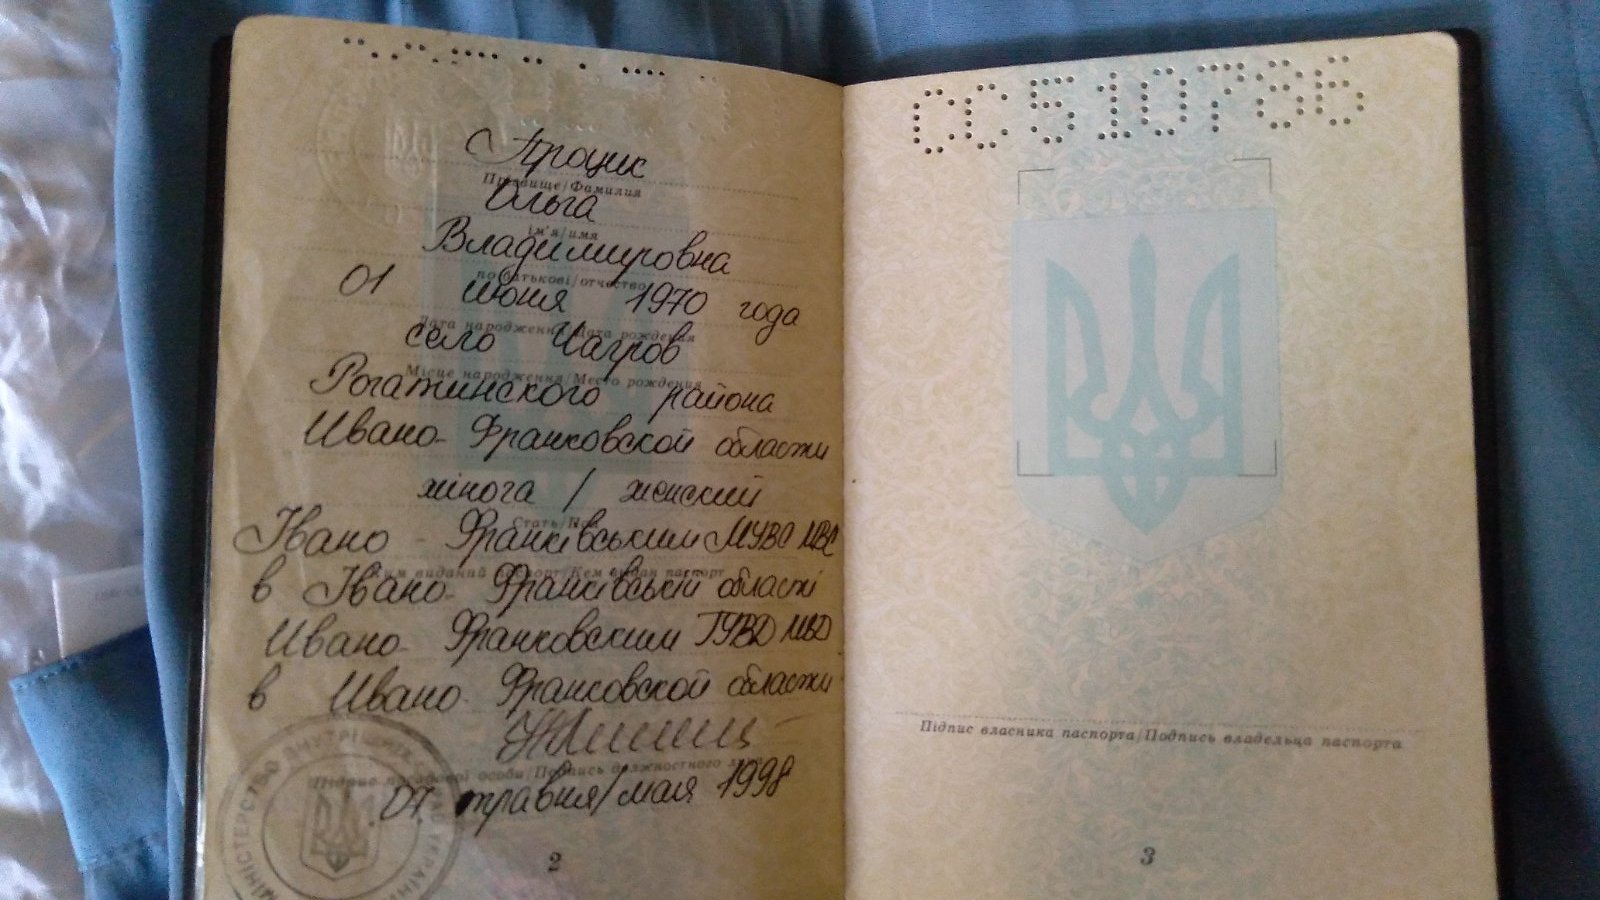 Процик
Прізвище/Фамилия
Ольга
ім'я/имя
Владимировна
по батькові/отчество
01 июня 1970 года
Дата народження/Дата рождения
село Чагров
Місце народження/Место рождения
Рогатинского района
Ивано-Франковской области
жіноча / женский
Стать/Пол
Івано-Франківським МУВС МВС
Ким виданий паспорт/Кем выдан паспорт
в Івано-Франківській області
Ивано-Франковским ГУВД МВД
в Ивано-Франковской области
Підпис посадової особи/Подпись должностного
07 травня/мая 1998
МІНІСТЕРСТВО ВНУТРІШНІХ СПРАВ УКРАЇНИ
2
СС510786
Підпис власника паспорта/Подпись владельца паспорта
3